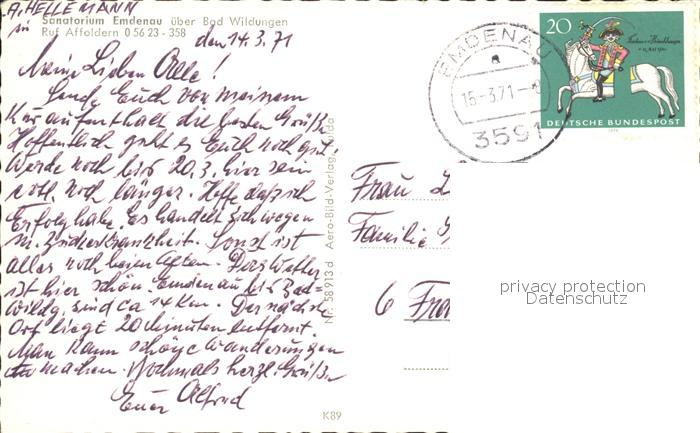 A. HELLEMANN
in Sanatorium Emdenau über Bad Wildungen
Ruf Affoldern 0 56 23 - 358
den 14.3.71
Meine Lieben Alle!
Sende Euch von meinem
Kuraufenthalt die besten Grüße
Hoffentlich geht es Euch noch gut.
Werde noch bis 20.3. hier sein
evtl. noch länger. Hoffe daß ich
Erfolg habe. Es handelt sich wegen
m. Zuckerkrankheit. Sonst ist
alles noch beim Alten. Das Wetter
ist hier schön. Emdenau bis Bad-
Wildg. sind ca 14 Km. Der nächste
Ort liegt 20 Minuten entfernt.
Man kann schöne Wanderungen
machen. Nochmals herzl. Grüße
Euer Alfred
Nr. 58 913 d Aero-Bild-Verlag, Fulda
K89
EMDENAU
15-3.71
3591
20
DEUTSCHE BUNDESPOST
1970
Frau
Familie
6 Fra
privacy protection
Datenschutz